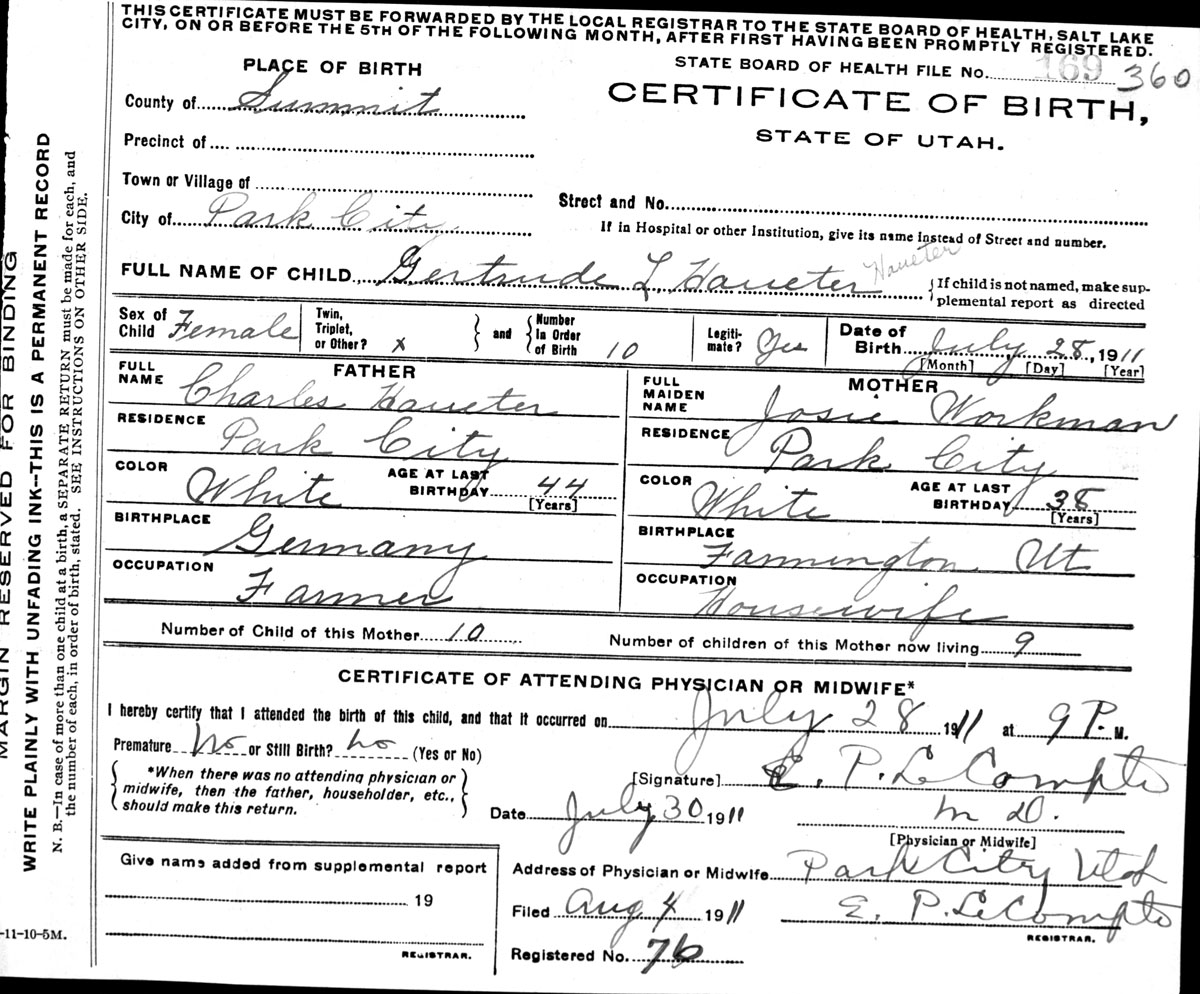 THIS CERTIFICATE MUST BE FORWARDED BY THE LOCAL REGISTRAR TO THE STATE BOARD OF HEALTH, SALT LAKE
CITY, ON OR BEFORE THE 5TH OF THE FOLLOWING MONTH, AFTER FIRST HAVING BEEN PROMPTLY REGISTERED.
STATE BOARD OF HEALTH FILE No. 169 360
CERTIFICATE OF BIRTH,
STATE OF UTAH.
PLACE OF BIRTH
County of Summit
Precinct of
Town or Village of
City of Park City
Street and No.
If in Hospital or other Institution, give its name instead of Street and number.
FULL NAME OF CHILD Gertrude L. Haueter Haueter
{If child is not named, make sup-
plemental report as directed
Sex of Child Female
Twin, Triplet, or Other? x } and { Number In Order of Birth 10
Legiti-mate? Yes
Date of Birth July 28, 1911
[Month] [Day] [Year]
FATHER
FULL NAME Charles Haueter
RESIDENCE Park City
COLOR White AGE AT LAST BIRTHDAY 44
[Years]
BIRTHPLACE Germany
OCCUPATION Farmer
MOTHER
FULL MAIDEN NAME Josie Workman
RESIDENCE Park City
COLOR White AGE AT LAST BIRTHDAY 38
[Years]
BIRTHPLACE Farmington Ut
OCCUPATION Housewife
Number of Child of this Mother 10 Number of children of this Mother now living 9
CERTIFICATE OF ATTENDING PHYSICIAN OR MIDWIFE*
I hereby certify that I attended the birth of this child, and that it occurred on July 28 1911 at 9 P. M.
Premature No or Still Birth? no (Yes or No)
{ *When there was no attending physician or
midwife, then the father, householder, etc.,
should make this return. }
[Signature] E. P. LeCompte
M D.
[Physician or Midwife]
Date July 30 1911
Address of Physician or Midwife Park City Utah
Filed Aug 4 1911 E. P. LeCompte
REGISTRAR.
Registered No. 76
Give name added from supplemental report
19
REGISTRAR.
MARGIN RESERVED FOR BINDING
WRITE PLAINLY WITH UNFADING INK--THIS IS A PERMANENT RECORD
N. B.—In case of more than one child at a birth, a SEPARATE RETURN must be made for each, and
the number of each, in order of birth, stated. SEE INSTRUCTIONS ON OTHER SIDE.
-11-10-5M.